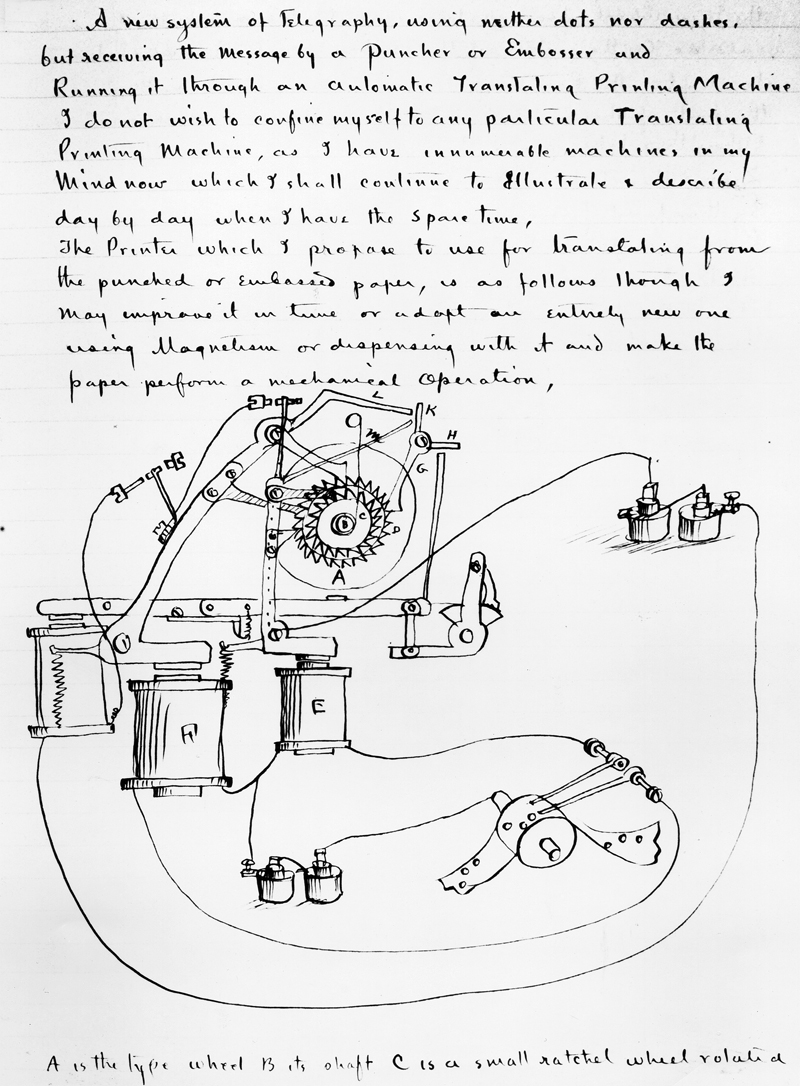 A new system of Telegraphy, using neither dots nor dashes,
but receiving the Message by a Puncher or Embosser and
Running it through an automatic Translating Printing Machine
I do not wish to confine myself to any particular Translating
Printing Machine, as I have innumerable machines in my
Mind now which I shall continue to Illustrate & describe
day by day when I have the spare time,
The Printer which I propose to use for translating from
the punched or Embossed paper, is as follows though I
May improve it in time or adopt an entirely new one
using Magnetism or dispensing with it and make the
paper perform a mechanical Operation,
L
K
H
M
G
C
B
D
A
E
A is the type wheel B its shaft C is a small ratchet wheel rotated